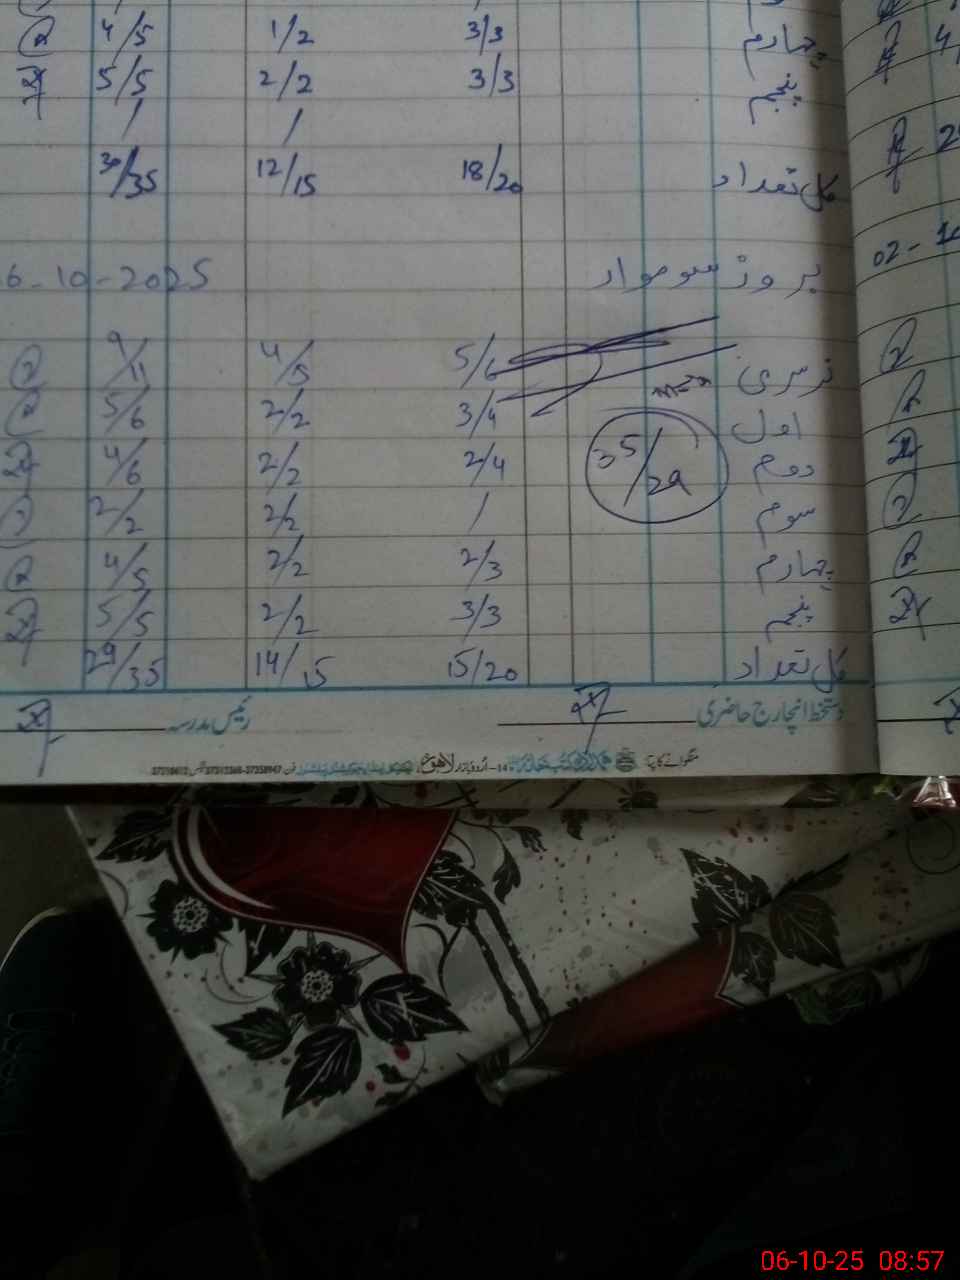 چہارم 3/3 1/2 4/5
پنجم 3/3 2/2 5/5
/ /
کل تعداد 18/20 12/15 30/35
02-10
بروز سوموار 6-10-2025
نرسری 5/6 4/5 9/11
اول 3/4 2/2 5/6
دوم 2/4 2/2 4/6
35/29
سوم / 2/2 2/2
چہارم 2/3 2/2 4/5
پنجم 3/3 2/2 5/5
کل تعداد 15/20 14/15 29/35
دستخط انچارج حاضری رئیس مدرسہ
منگوانے کا پتہ: 14-اردو بازار لاہور
06-10-25 08:57